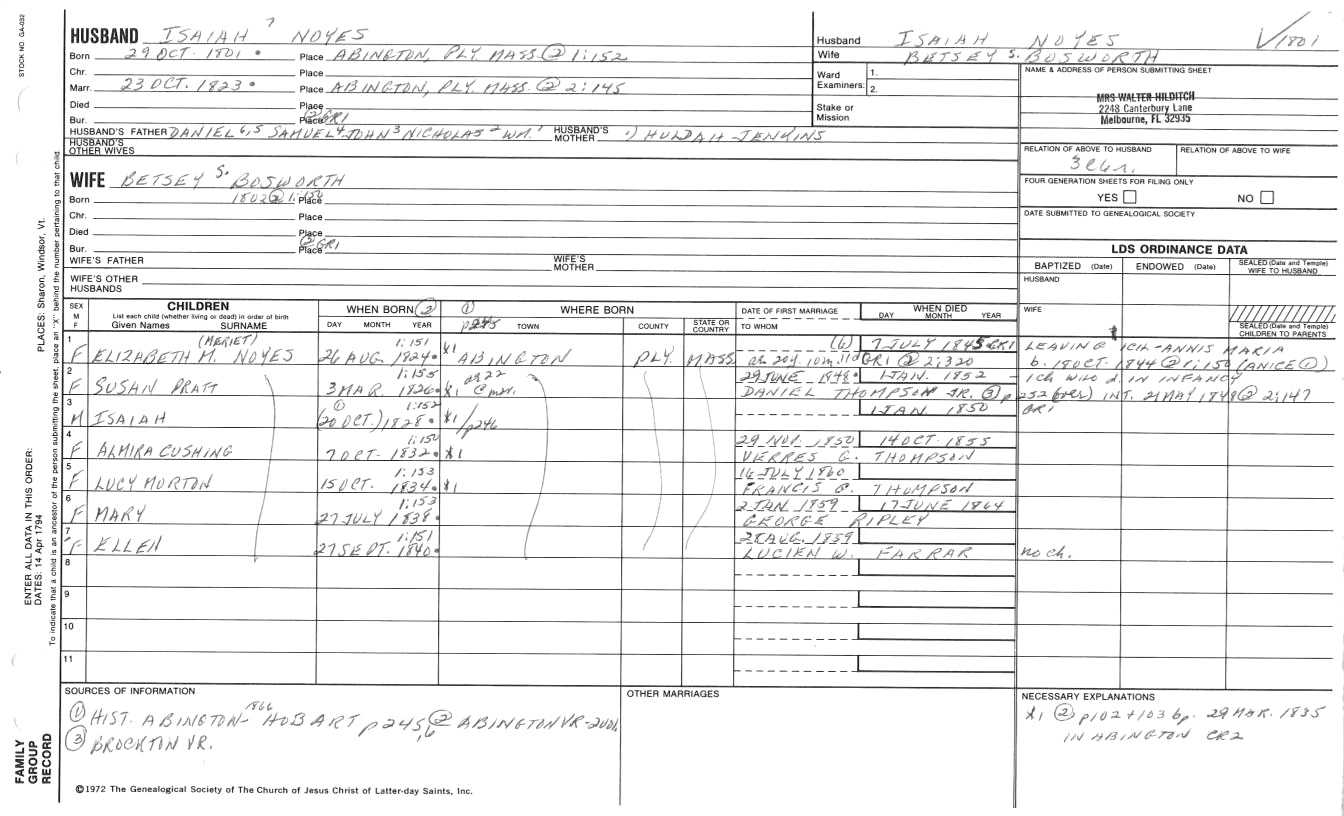 STOCK NO. GA-032
HUSBAND ISAIAH 7 NOYES
Born 29 OCT. 1801 • Place ABINGTON, PLY MASS. ② 1:152
Chr. Place
Marr. 23 OCT. 1823 • Place ABINGTON, PLY MASS. ② 2:145
Died Place
Bur. Place ② GR1
HUSBAND'S FATHER DANIEL 6,5 SAMUEL 4 JOHN 3 NICHOLAS 2 WM. 1 HUSBAND'S MOTHER HULDAH JENKINS
HUSBAND'S OTHER WIVES
WIFE BETSEY S. BOSWORTH
Born 1802 ② 1:150 Place
Chr. Place
Died Place
Bur. Place ② GR1
WIFE'S FATHER WIFE'S MOTHER
WIFE'S OTHER HUSBANDS
Husband ISAIAH NOYES √1801
Wife BETSEY S. BOSWORTH
Ward Examiners: 1. 2.
Stake or Mission
NAME & ADDRESS OF PERSON SUBMITTING SHEET
MRS WALTER HILDITCH
2248 Canterbury Lane
Melbourne, FL 32935
RELATION OF ABOVE TO HUSBAND RELATION OF ABOVE TO WIFE
FOUR GENERATION SHEETS FOR FILING ONLY
YES NO
DATE SUBMITTED TO GENEALOGICAL SOCIETY
LDS ORDINANCE DATA
BAPTIZED (Date) ENDOWED (Date) SEALED (Date and Temple) WIFE TO HUSBAND
HUSBAND
WIFE
SEALED (Date and Temple) CHILDREN TO PARENTS
SEX M F
CHILDREN
List each child (whether living or dead) in order of birth
Given Names SURNAME
WHEN BORN ② ① WHERE BORN
DAY MONTH YEAR p245 TOWN COUNTY STATE OR COUNTRY
DATE OF FIRST MARRIAGE
TO WHOM
WHEN DIED
DAY MONTH YEAR
1 (HERIET) 1:151 (6) 7 JULY 1845 GR1 LEAVING 1CH-ANNIS MARIA
F ELIZABETH M. NOYES 26 AUG. 1824 • X1 ABINGTON PLY. MASS. as 20y 10m 11d GR1 ② 2:320 b. 18 OCT. 1844 ② 1:150 (ANICE ①)
2 1:155 29 JUNE 1848 • 1 JAN. 1852 - 1ch WHO d. IN INFANCY
F SUSAN PRATT 3 MAR. 1826 • X1 DANIEL THOMPSON JR. ③ p252 INT. 21 MAY 1848 ② 2:147
3 ① 1:152 1 JAN 1850 GR1
M ISAIAH (20 OCT.) 1828 • X1 /p246
4 1:150 29 NOV. 1850 14 OCT. 1855
F ALMIRA CUSHING 7 OCT. 1832 • X1 VERRES G. THOMPSON
5 1:153 16 JULY 1860
F LUCY MORTON 15 OCT. 1834 • X1 FRANCIS B. THOMPSON
6 1:153 2 JAN 1859 17 JUNE 1864
F MARY 27 JULY 1838 • GEORGE RIPLEY
7 1:151 28 AUG. 1859
F ELLEN 27 SEPT. 1840 • LUCIEN W. FARRAR no ch.
8
9
10
11
SOURCES OF INFORMATION
① HIST. ABINGTON- 1866 HOBART p245,6 ② ABINGTON VR-2vols.
③ BROCKTON VR.
OTHER MARRIAGES
NECESSARY EXPLANATIONS
X1 ② p102+103 bp. 29 MAR. 1835
IN ABINGTON CR2
©1972 The Genealogical Society of The Church of Jesus Christ of Latter-day Saints, Inc.
FAMILY GROUP RECORD
ENTER ALL DATA IN THIS ORDER:
DATES: 14 Apr 1794
PLACES: Sharon, Windsor, Vt.
To indicate that a child is an ancestor of the person submitting the sheet, place an "X" behind the number pertaining to that child